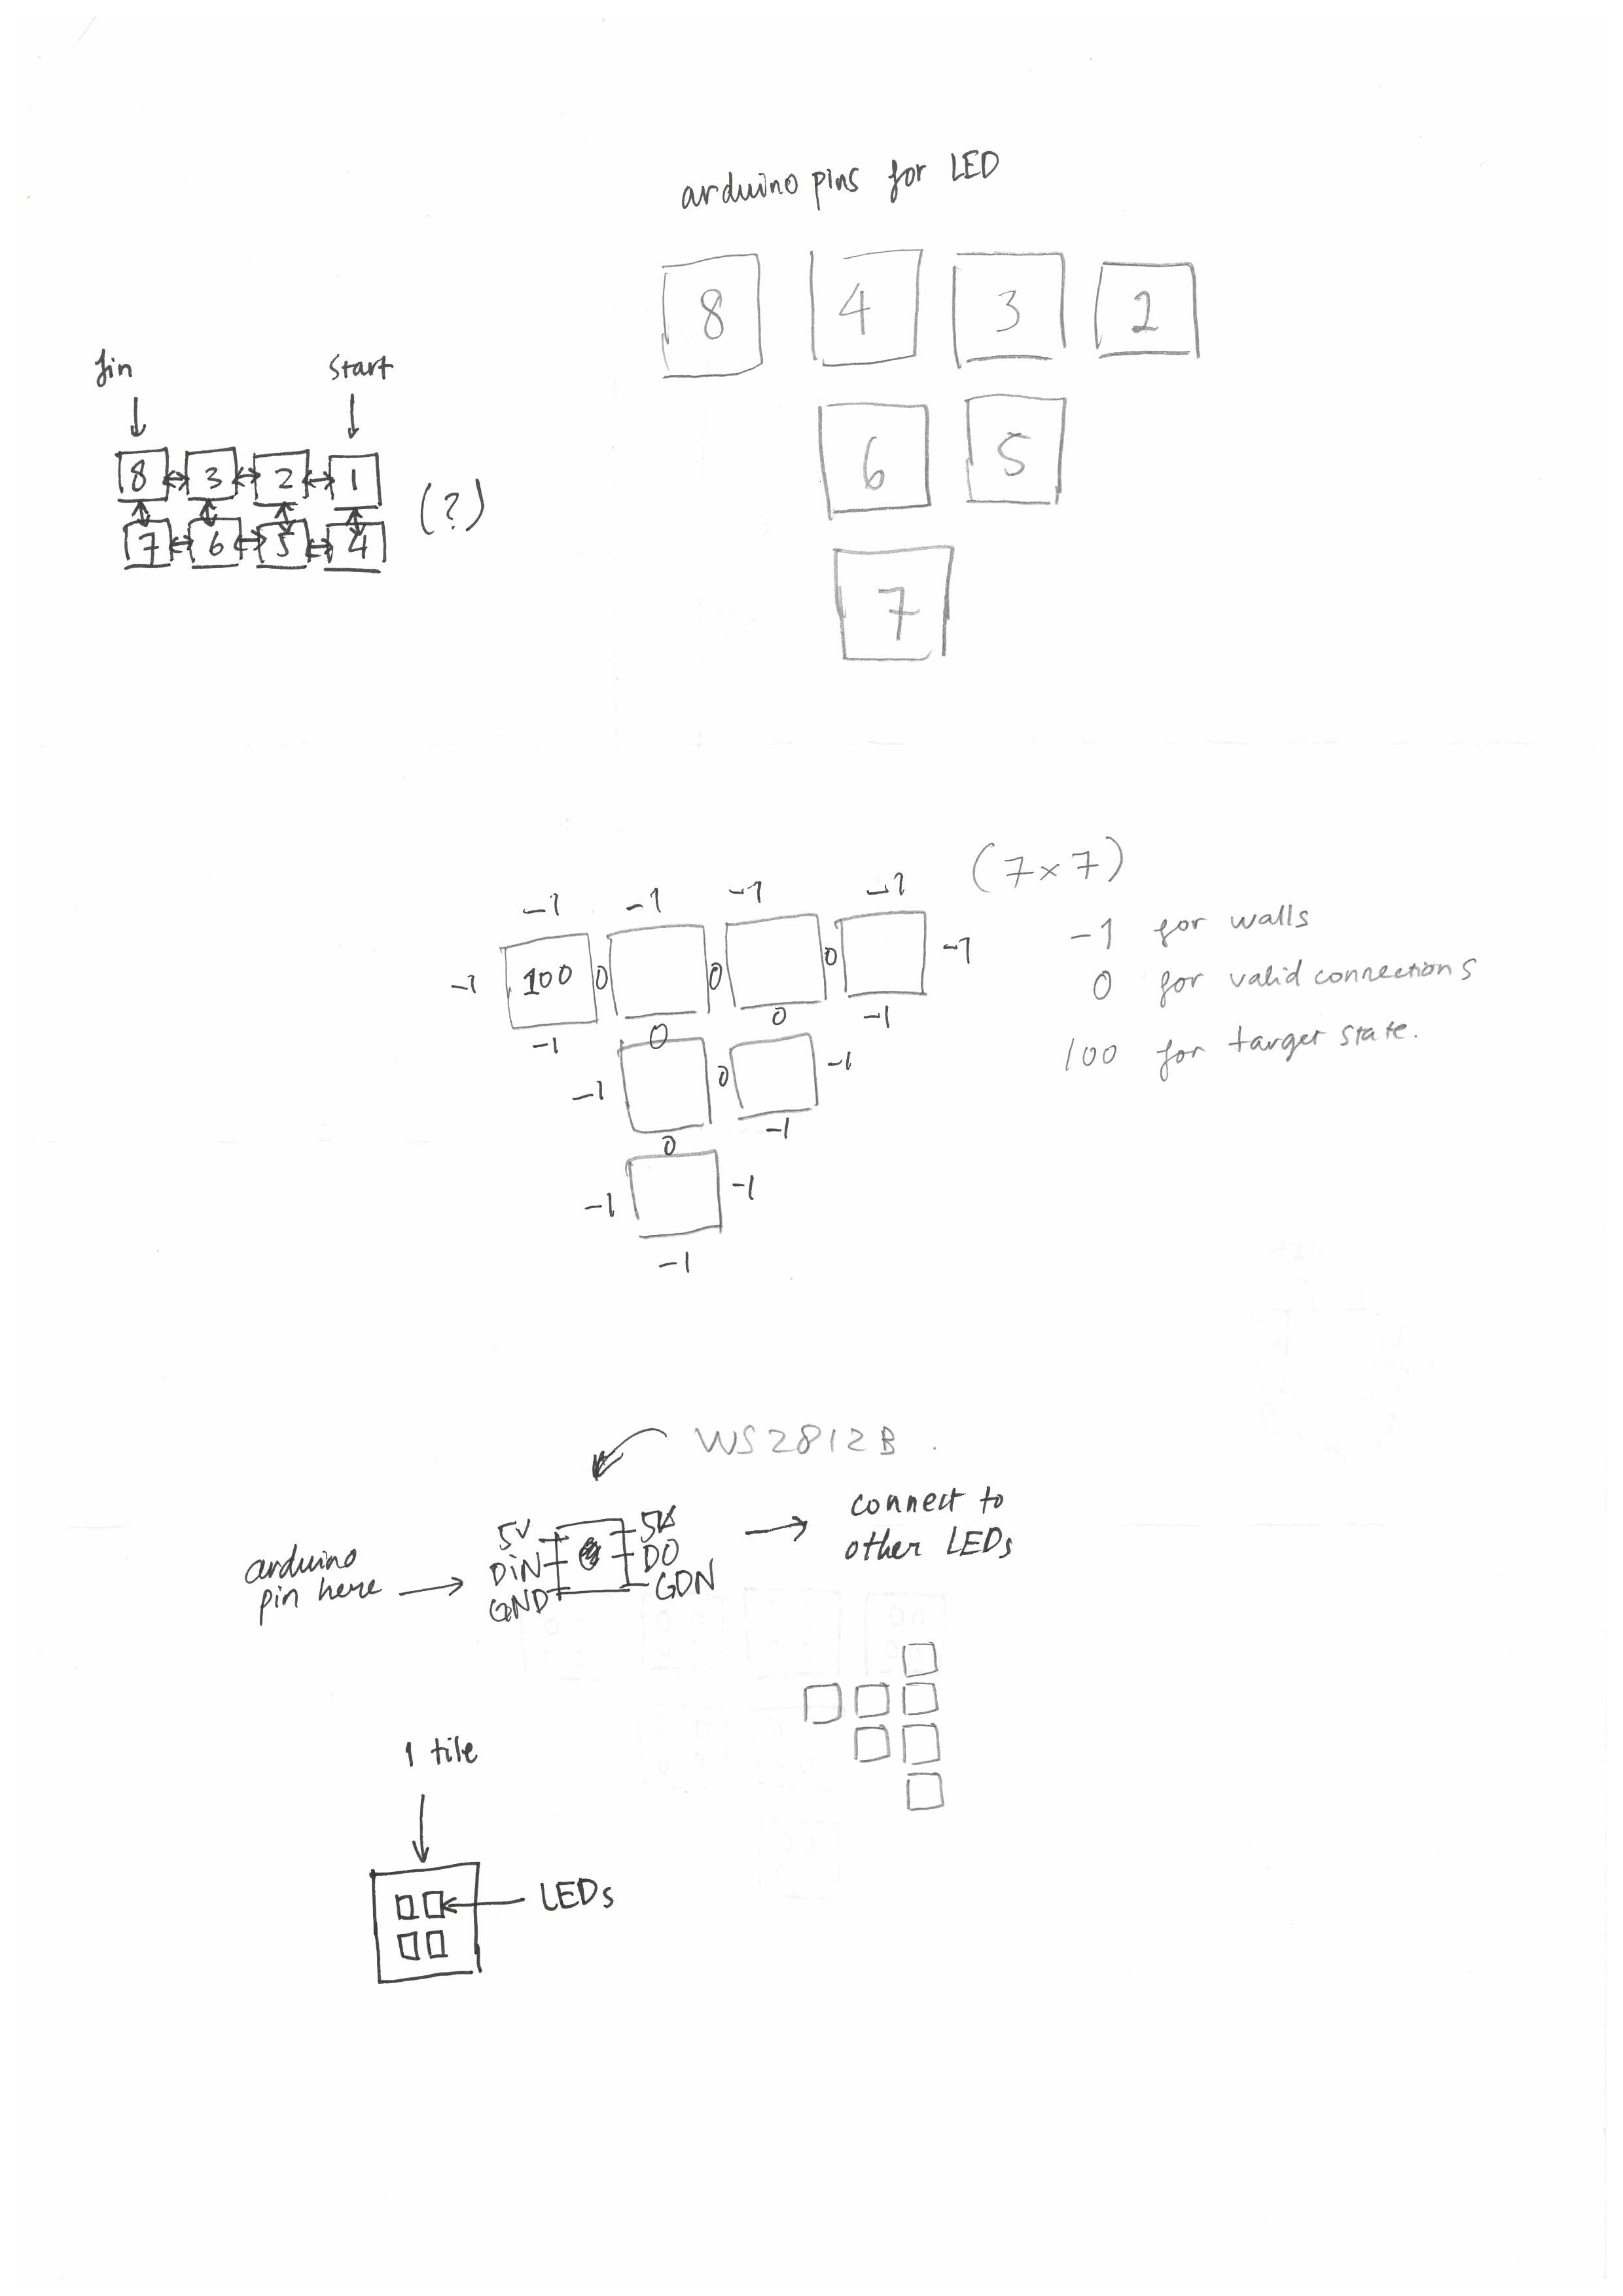 arduino pins for LED
8 4 3 2
6 5
7
fin start
8 3 2 1
(?)
7 6 5 4
(7×7)
-1 -1 -1 -1
-1 100 0 0 0 -1
-1 0 0 -1
-1 0 -1
0 -1
-1 -1
-1
-1 for walls
0 for valid connections
100 for target state.
WS2812B.
5V 5V
DiN DO
GND GDN
arduino
pin here
connect to
other LEDs
1 tile
LEDs